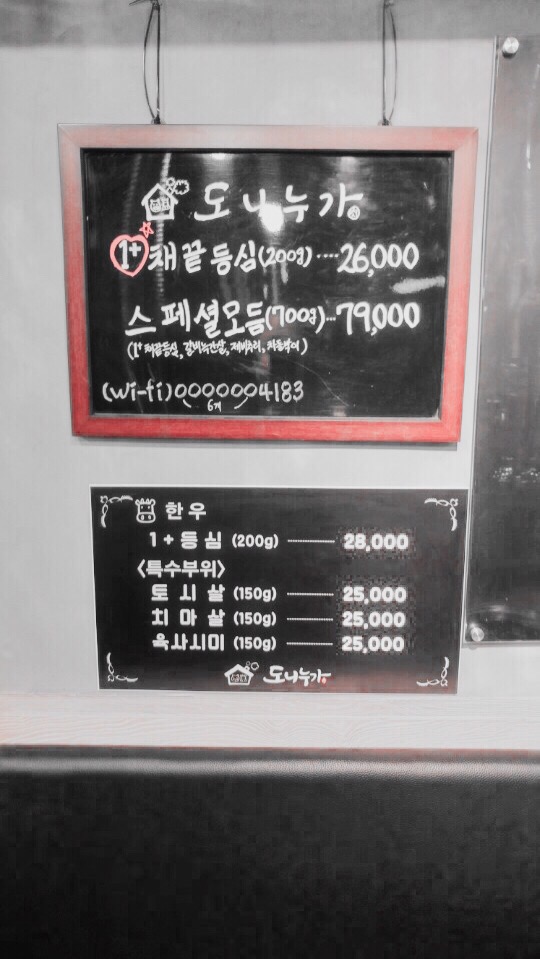 도니누가
1+ 채끝등심(200g)····26,000
스페셜모듬(700g)...79,000
(1+ 채끝등심, 갈비늑간살, 제비추리, 차돌박이)
(wi-fi)0000004183
6개
한우
1+등심 (200g) 28,000
<특수부위>
토시살 (150g) 25,000
치마살 (150g) 25,000
육사시미 (150g) 25,000
도니누가